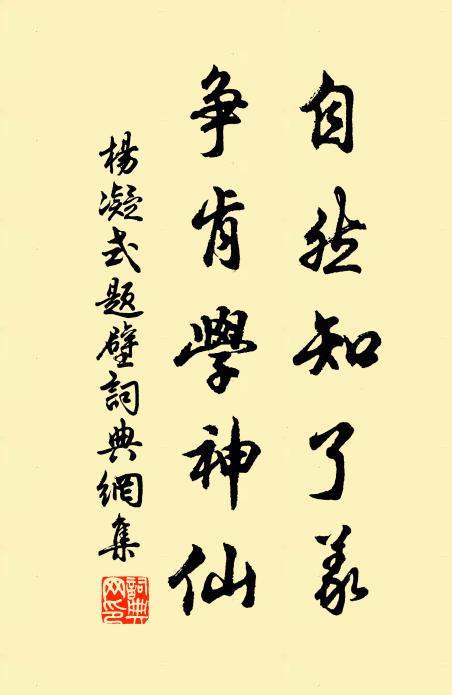 自然知了義
争肯學神仙
楊凝式題壁詞典網集
詞典网印